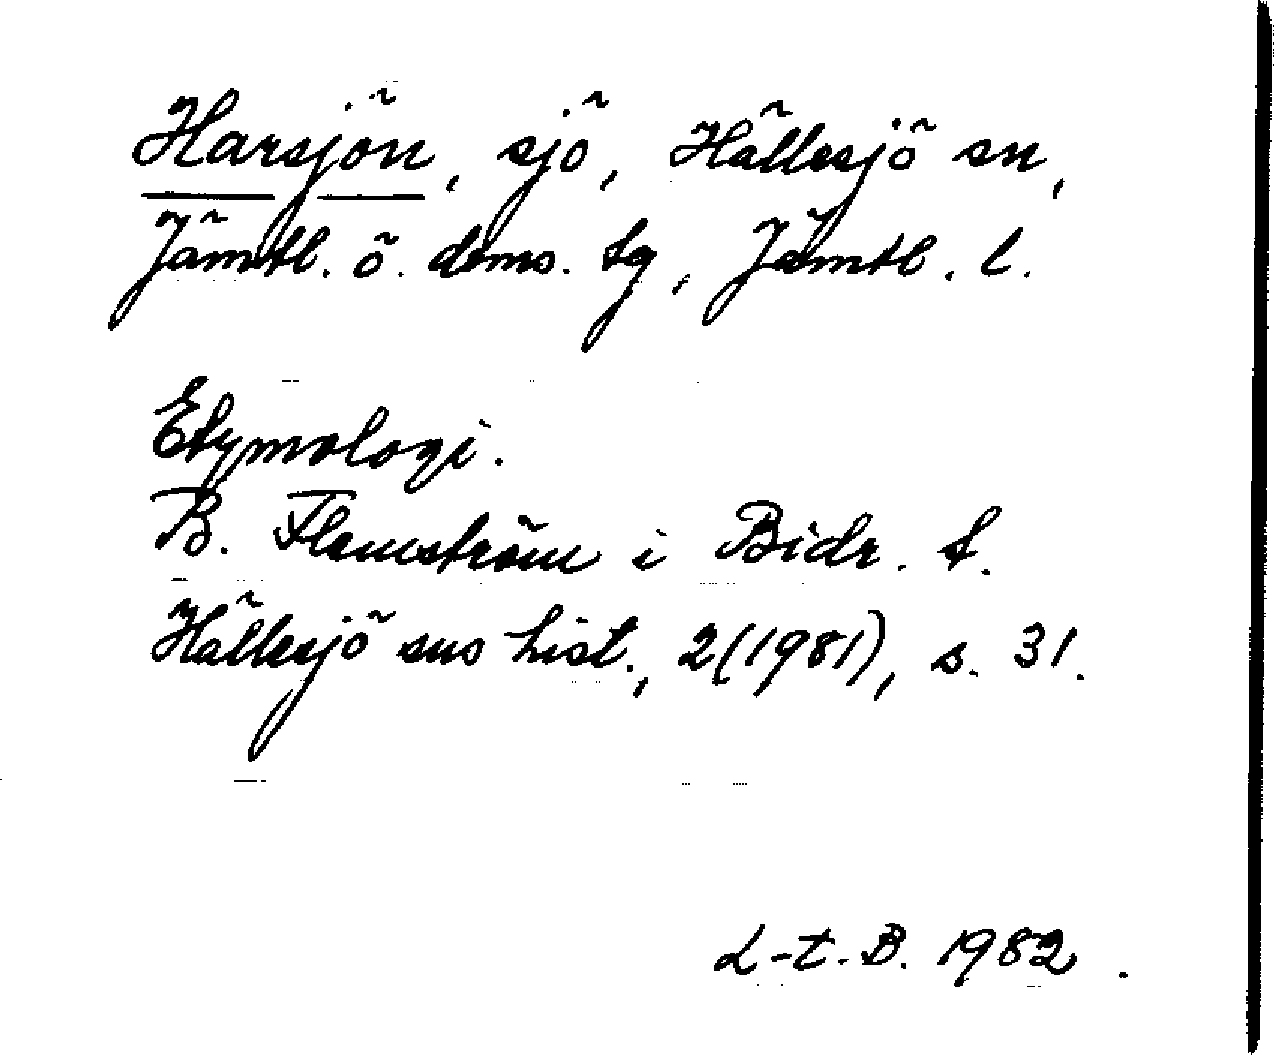 Harsjön, sjö, Hällesjö sn,
Jämtl. ö. doms. tg, Jämtl. l.
Etymologi.
B. Flemström i Bidr. t.
Hällesjö sns hist., 2(1981), s. 31.
L-t. B. 1982.